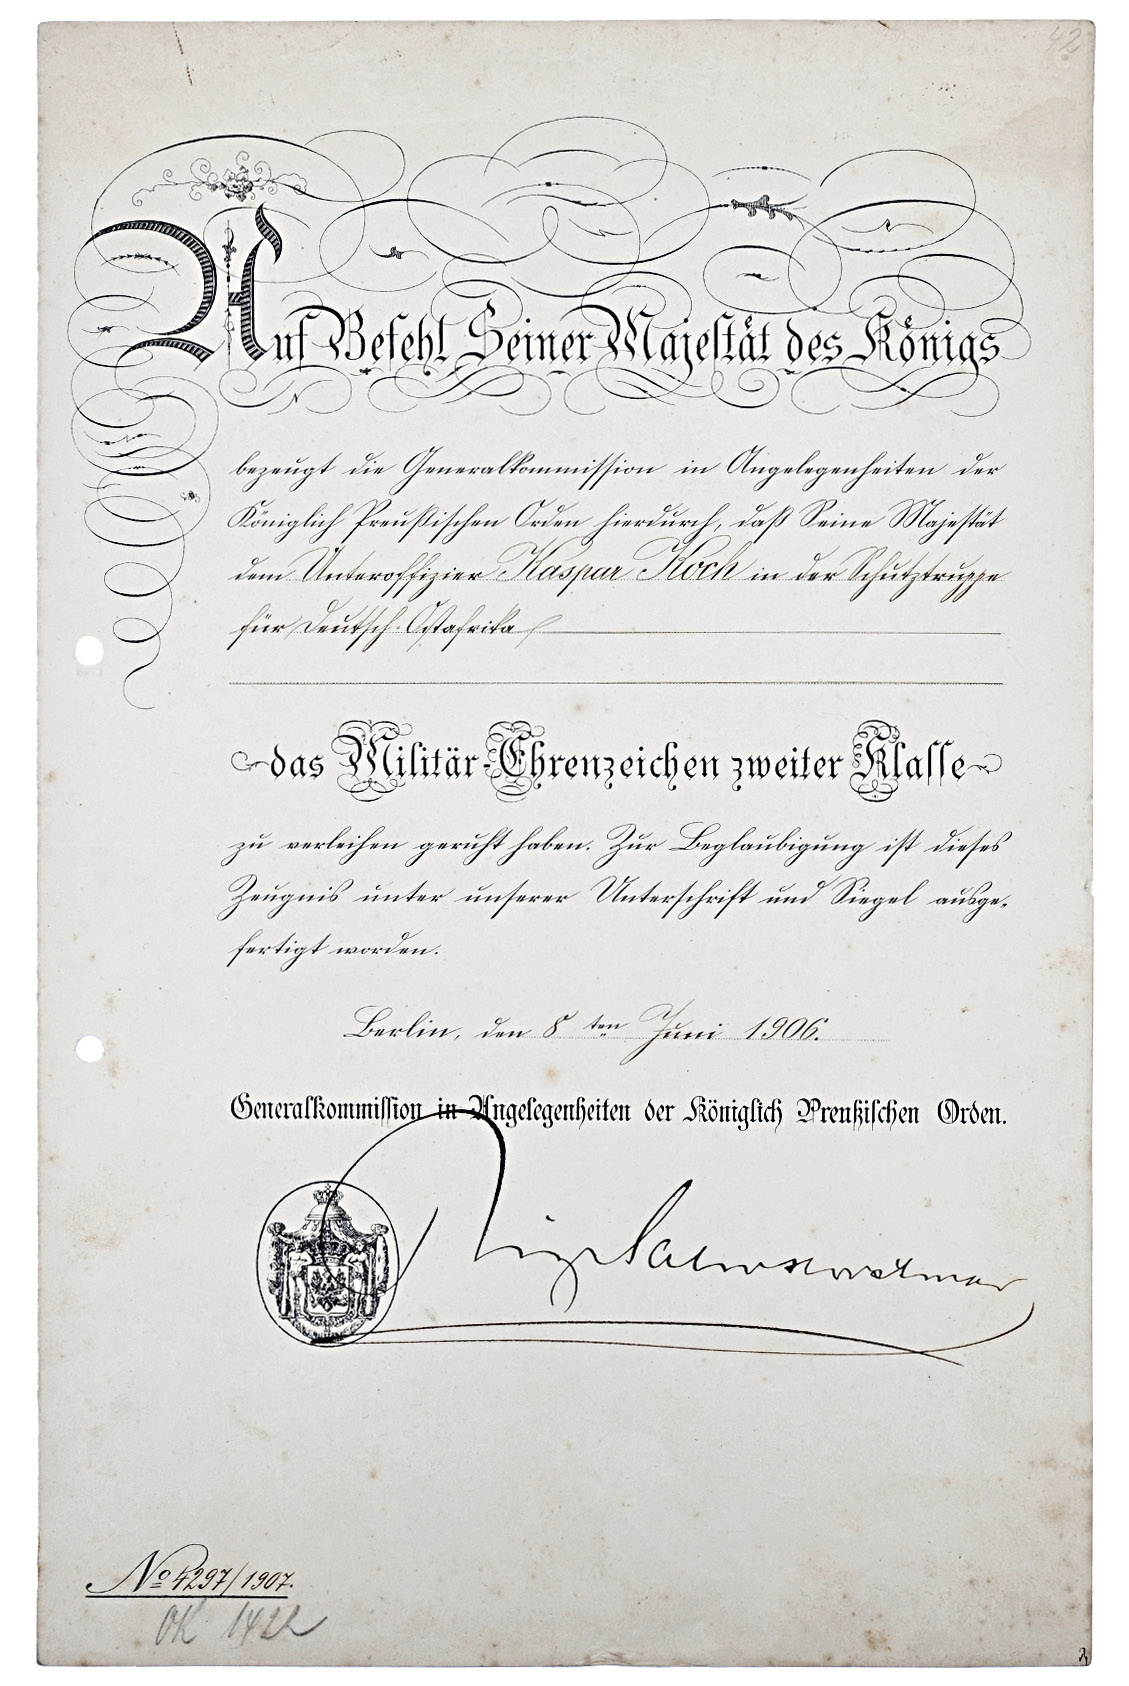 42
Auf Befehl Seiner Majestät des Königs
bezeugt die Generalkommission in Angelegenheiten der
Königlich Preußischen Orden hierdurch, daß Seine Majestät
dem Unteroffizier Kaspar Koch in der Schutztruppe
für Deutsch-Ostafrika
das Militär-Ehrenzeichen zweiter Klasse
zu verleihen geruht haben. Zur Beglaubigung ist dieses
Zeugnis unter unserer Unterschrift und Siegel ausge-
fertigt worden.
Berlin, den 8ten Juni 1906.
Generalkommission in Angelegenheiten der Königlich Preußischen Orden.
No 4297/1907.
OK 1422